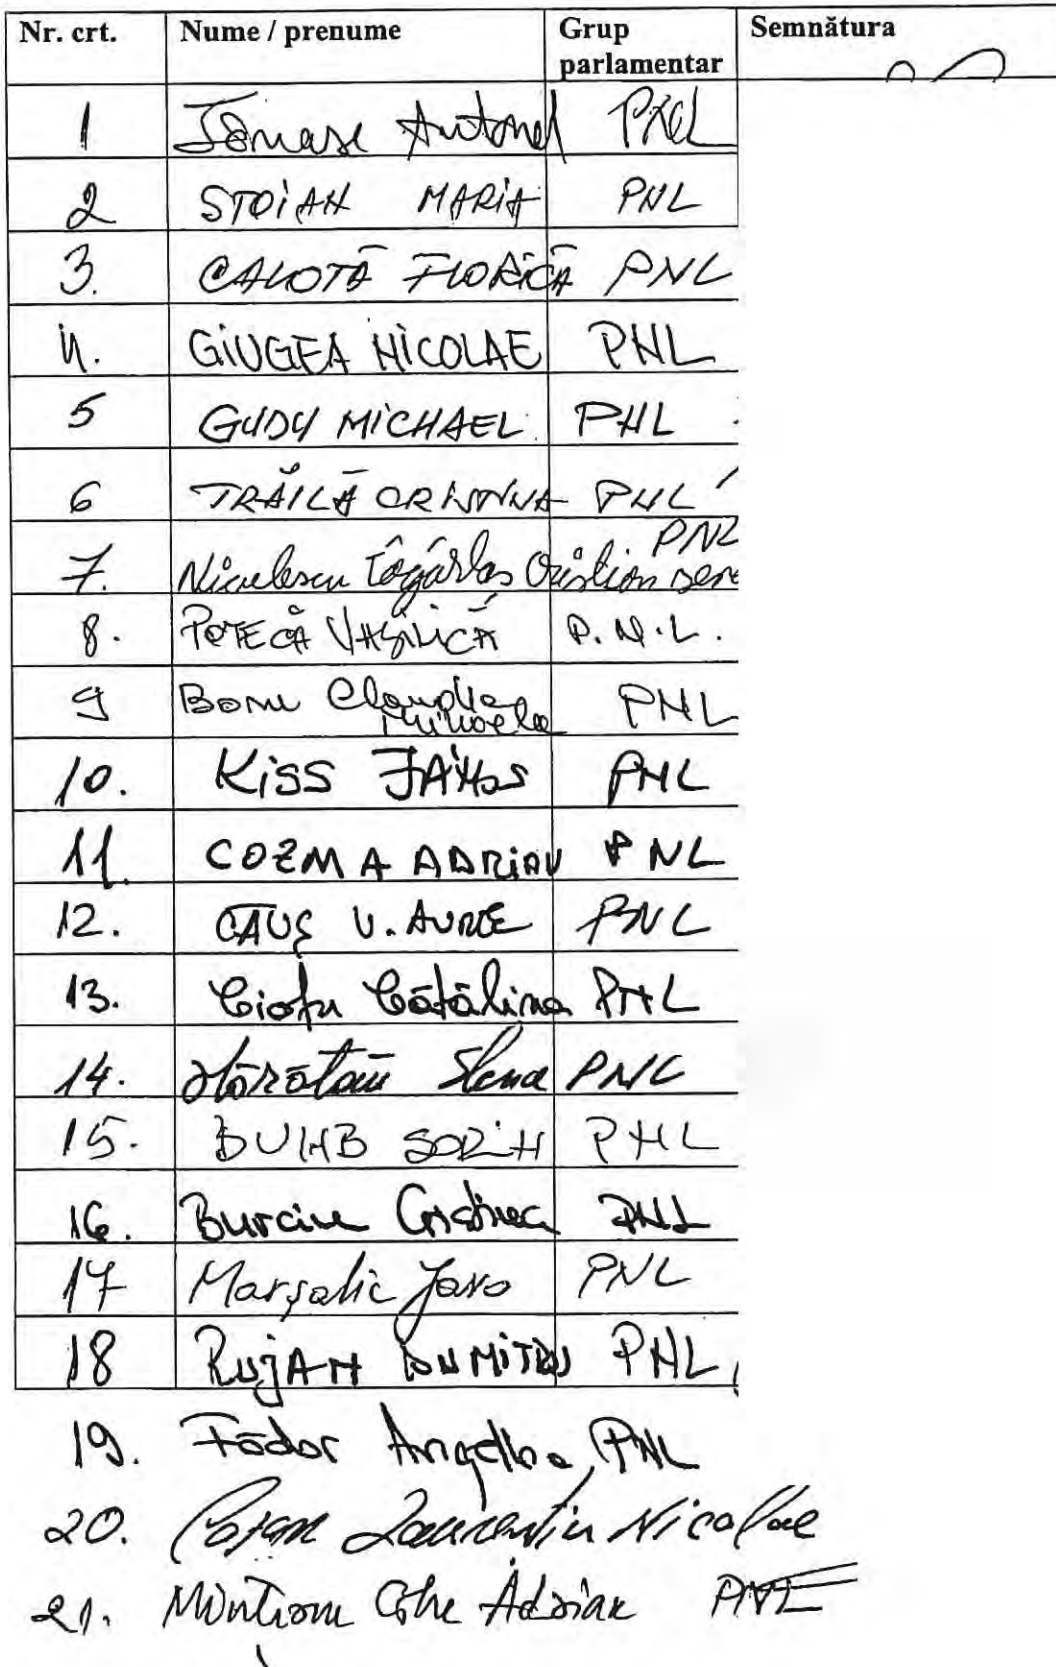 Nr. crt. Nume / prenume Grup parlamentar Semnătura
1 Tomase Antonel PNL
2 STOIAN MARIA PNL
3. CALOTĂ FLORICĂ PNL
4. GIUGEA NICOLAE PNL
5 GUDU MICHAEL PNL
6 TRĂILĂ CRISTINA PNL
7. Niculescu Țâgârlaș Cristian PNL
8. POTECĂ VASILICĂ P.N.L.
9 Boru Claudia Mihaela PNL
10. KISS JÁNOS PNL
11. COZMA ADRIAN PNL
12. CAUȘ V. PNL
13. Ciofu Cătălina PNL
14. Elena PNL
15. BUMB SORIN PNL
16. Burciu Cristina PNL
17 Marșalic Jaro PNL
18 RUJAN DUMITRU PNL
19. Fădor Angelica PNL
20. Laurentiu Nicolae
21. Adrian PNL